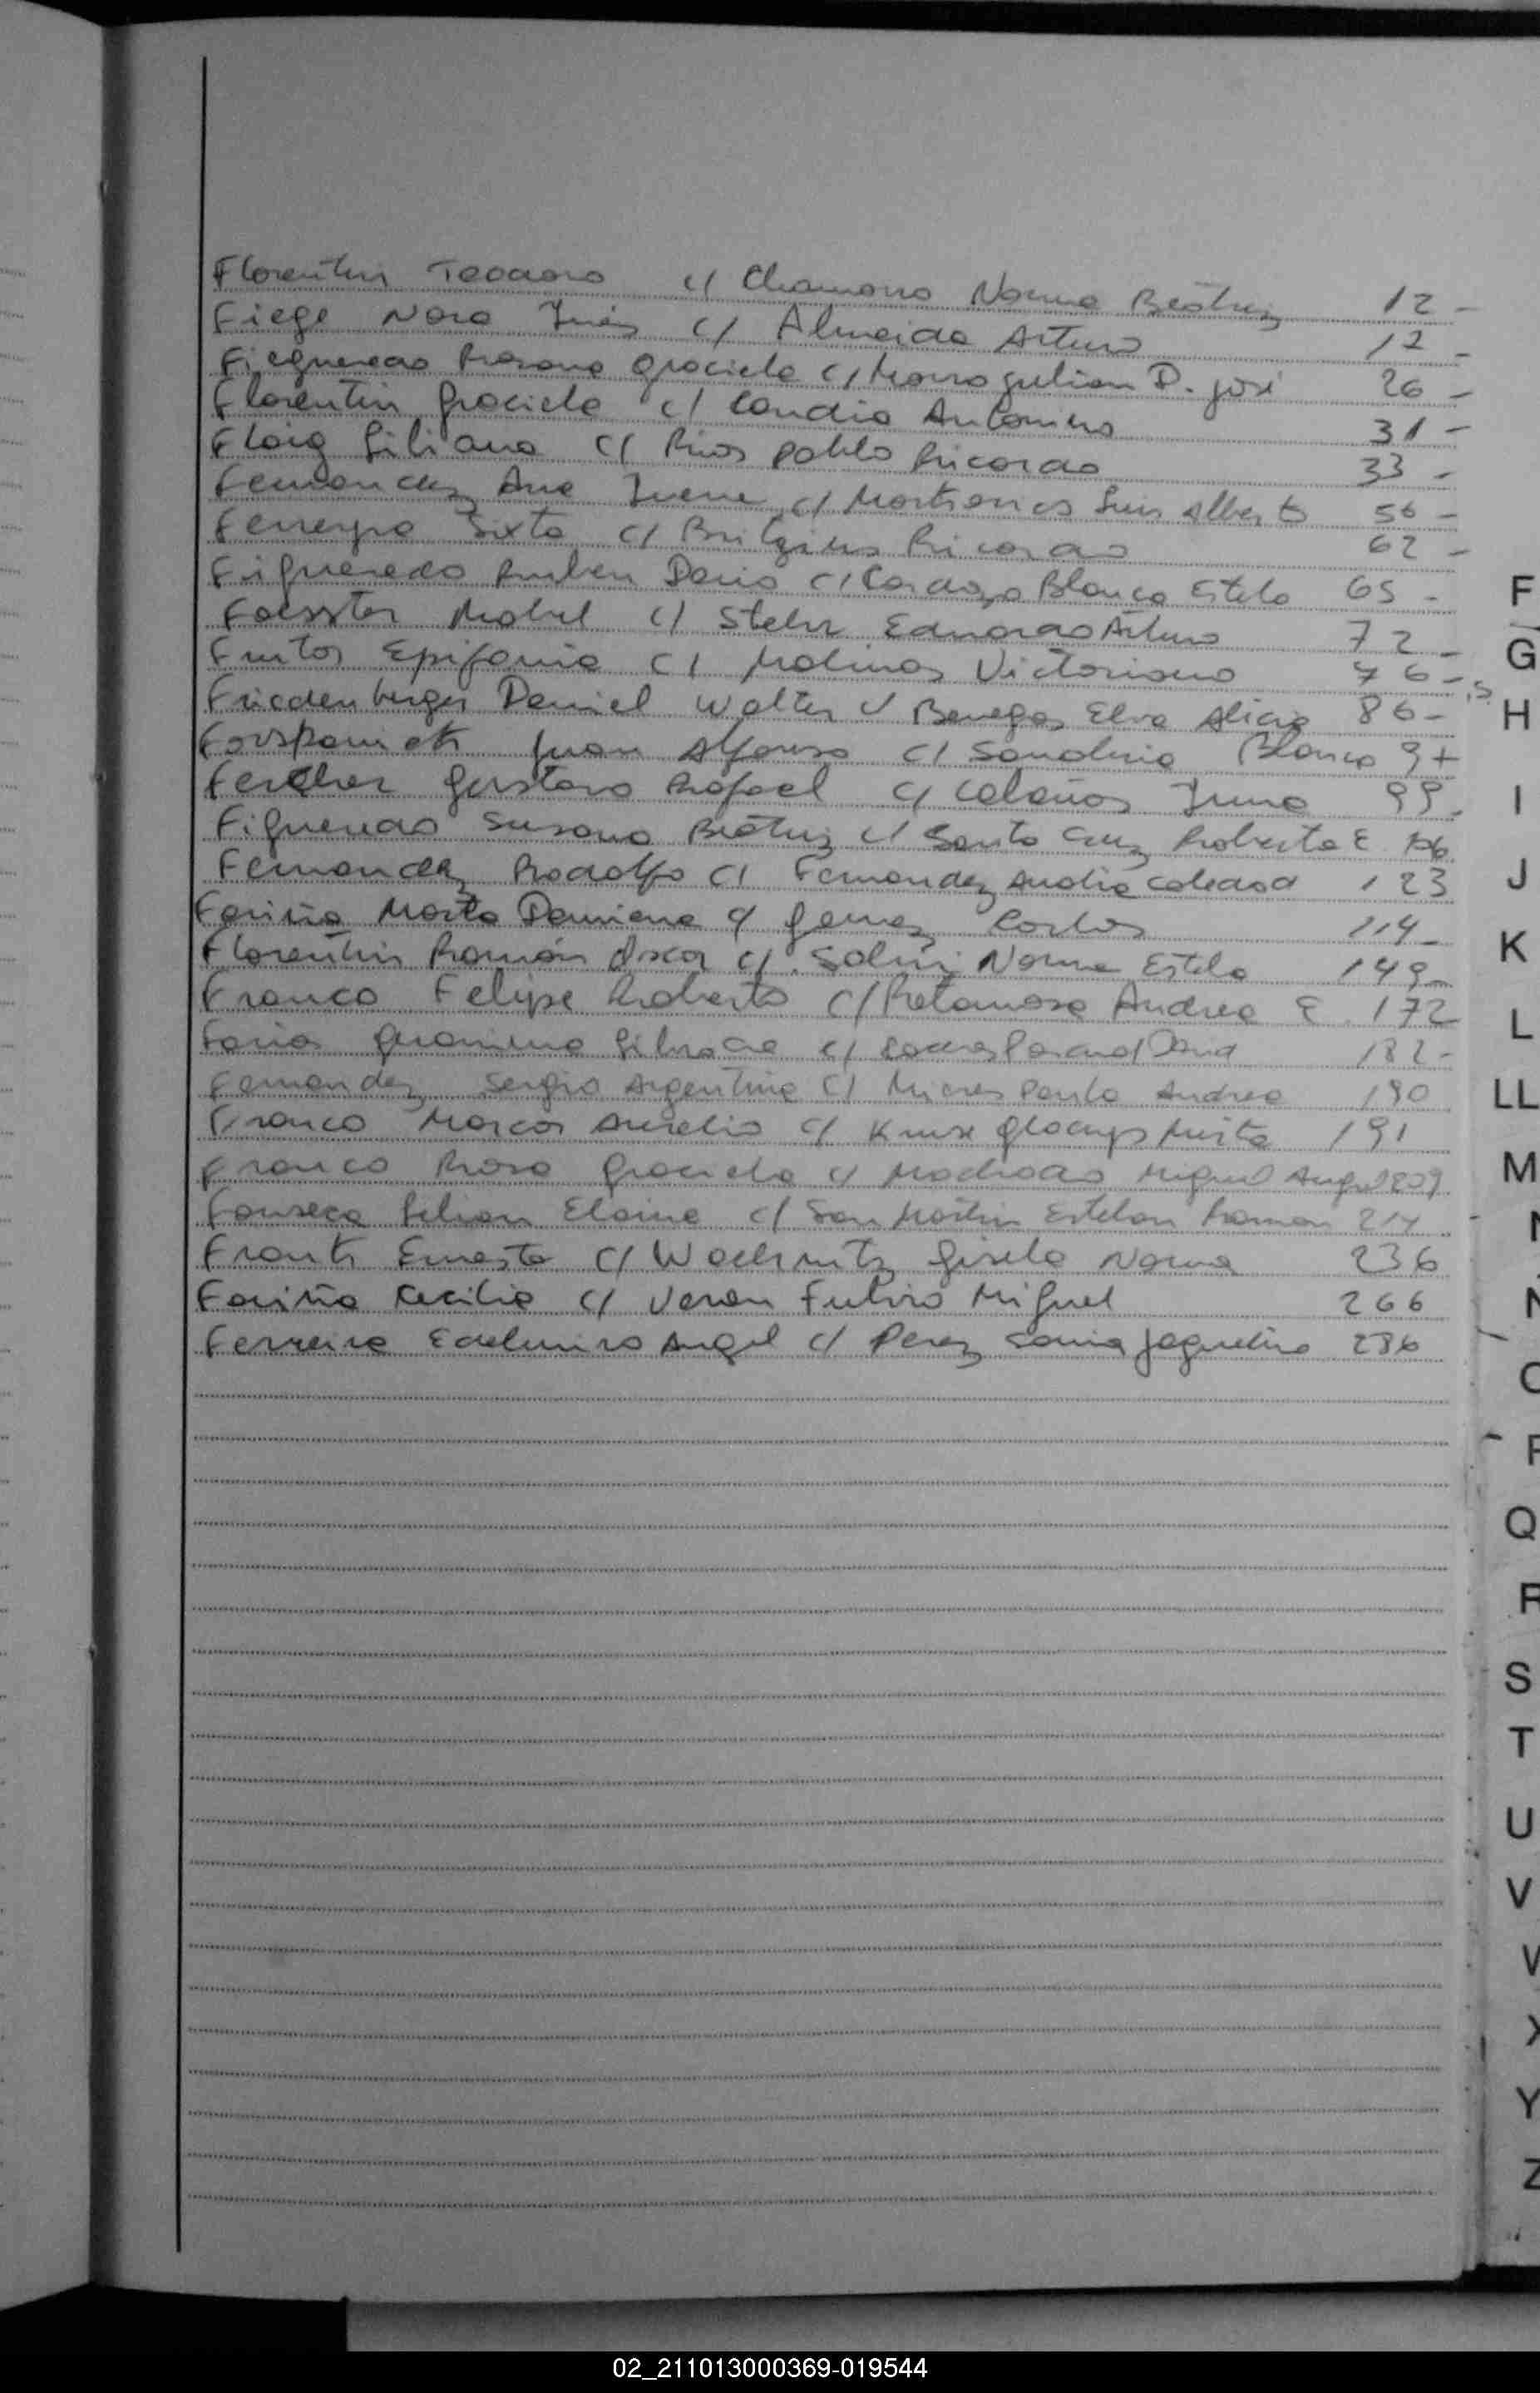 Florentin Teodoro c/ Chamorro Norma Beatriz 12 -
Fiege Nora Inés c/ Almeida Arturo 17 -
Figueredo Rosana Graciela c/ Julian D. José 26 -
Florentin Graciela c/ Candia Antonino 31 -
Floig Liliana c/ Rios Pablo Ricardo 33 -
Fernandez Ana Irene c/ Luis Alberto 56 -
Ferreyra Sixta c/ Ricardo 62 -
Figueredo Ruben Dario c/ Cardozo Blanca Estela 65 -
Mabel c/ Stehr Eduardo Arturo 72 -
Frutos Epifania c/ Molinas Victoriano 76 -
Friedenberger Daniel Walter c/ Benegas Elva Alicia 86 -
Juan Alfonso c/ Sanabria Blanca 97
Fercher Gustavo Rafael c/ Irma 99 -
Figueredo Susana Beatriz c/ Santa Cruz Roberto E. 106
Fernandez Rodolfo c/ Fernandez 123
Fariña Marta Damiana c/ Gomez Carlos 114 -
Florentin Ramón Oscar c/ Norma Estela 149 -
Franco Felipe Roberto c/ Retamosa Andrea E. 172
Farias Geronima c/ 182 -
Fernandez Sergio Argentino c/ Mieres Paula Andrea 190
Franco Marcos Aurelio c/ Gladys Mirta 191
Franco Rosa Graciela c/ Machado Miguel Angel 209
Fonseca Lilian Elaine c/ San Martin Esteban Ramon 214
Ernesto c/ Gisela Norma 236
Fariña Cecilia c/ Veron Fulvio Miguel 266
Ferreira Edelmiro Angel c/ Perez Sonia Jaquelina 286
F
G
H
I
J
K
L
LL
M
Q
S
T
U
V
Y
Z
02_211013000369-019544